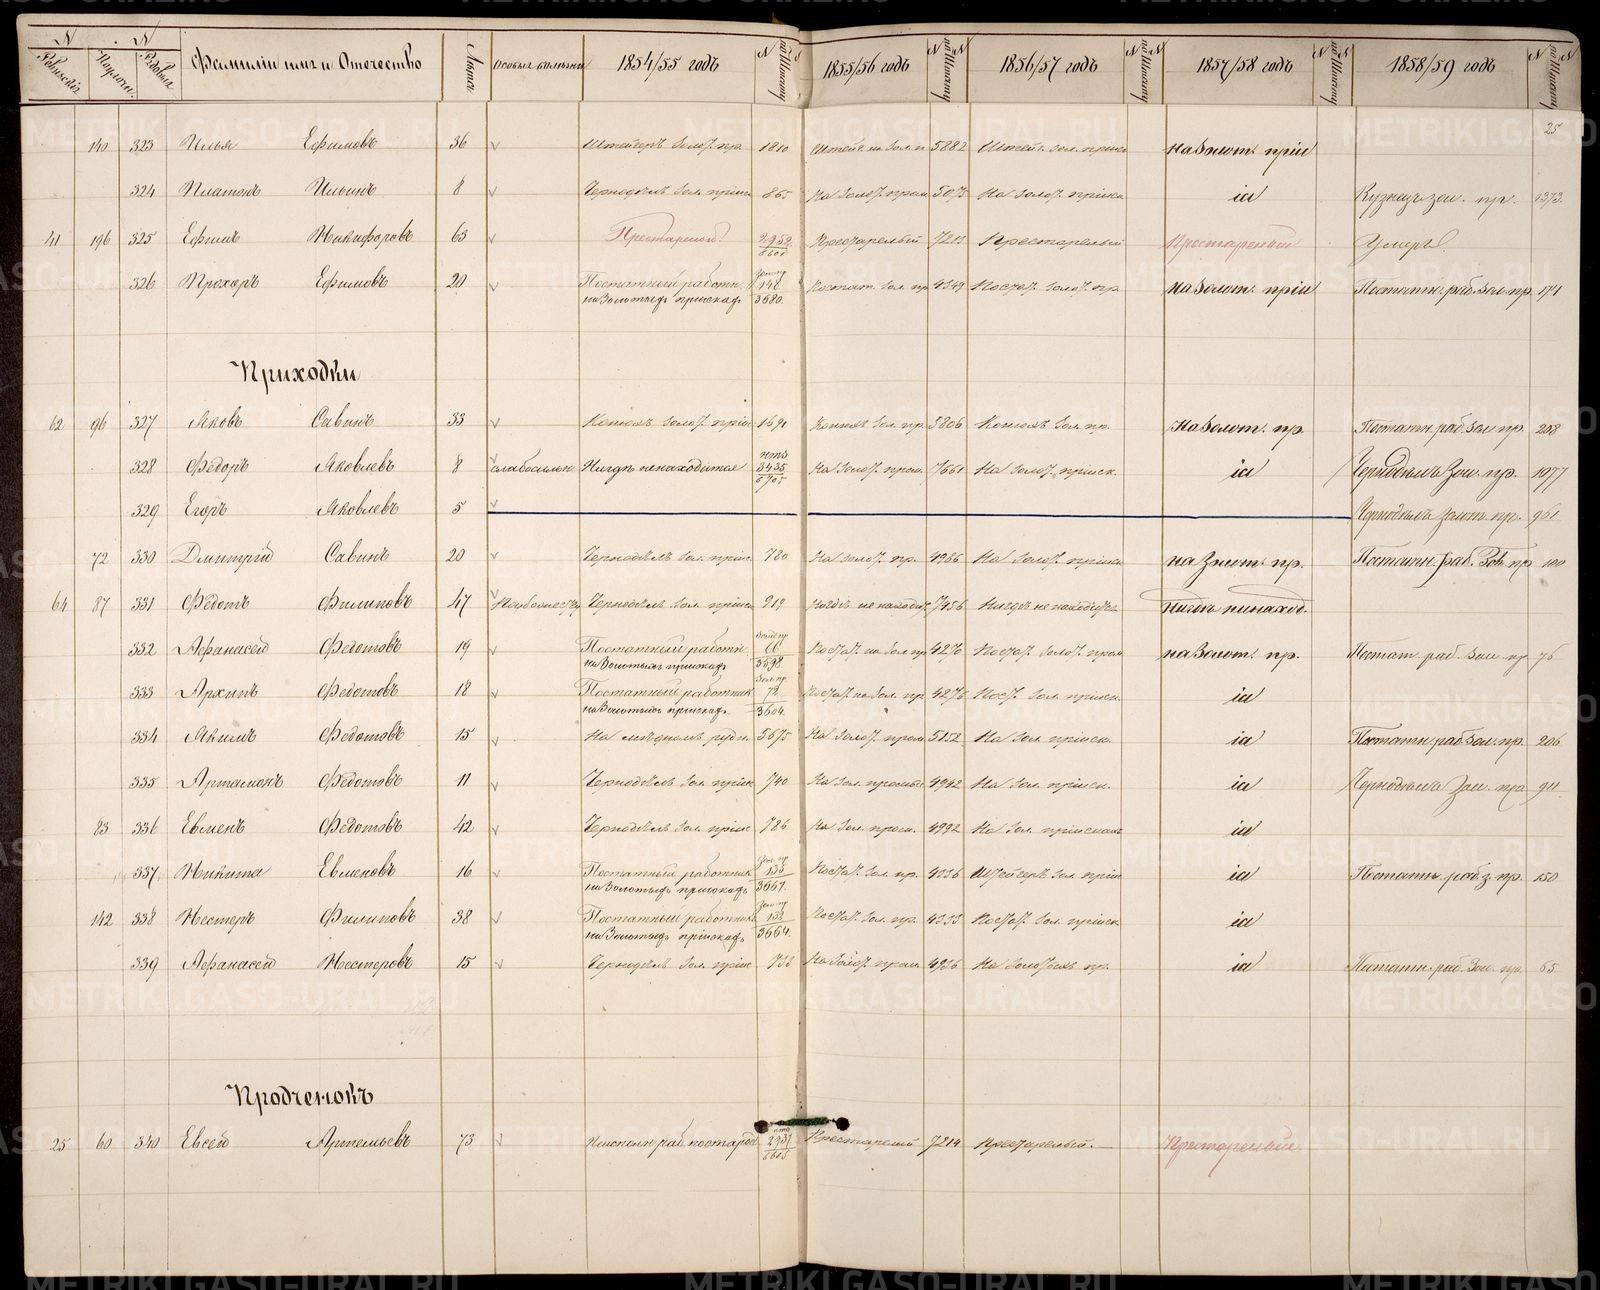 N N
Ревизскія Поулочн. Рядовыя Фамиліи имя и Отечество Лѣта Особыя болѣзни 1854/55 годъ N по Штату 1855/56 годъ N по Штату N 1856/57 годъ N по Штату N 1857/58 годъ N по Штату 1858/59 годъ N по Штату N
25
140 323 Илья Ефимовъ 36 Штейгеръ Золот. пр. 1810 Штейг. на Зол. п 5882 Штейг. Зол. пріис на Золот. пріи
324 Платонъ Ильинъ 8 Чернодѣлъ Зол. пріиск 865 На Золот. пром 5075 На Золот. пріиска id Кузнецъ зол. пр. 1373
41 196 325 Ефимъ Никифоровъ 63 Престарелой 2952 6601 Престарелый 7211 Престарелый Престарелый Умеръ
326 Прохоръ Ефимовъ 20 Постатный работн. на Золотыхъ пріискахъ Зол. пр 148 3680. Постат. Зол. пр 4349 Постат. Золот. пр. на Золот. пріи Постатн. раб. Зол. пр. 171
Приходки
62 96 327 Яковъ Савинъ 33 Конюхъ Золот. пріис 1691 Конюх Зол. пр. 5806 Конюхъ Зол. пр. На Золот. пр. Постатн. раб. Зол. пр. 208
328 Ѳедоръ Яковлевъ 8 слабосильн Нигдѣ ненаходится 3435 6705 На Золот. пром. 7661 На Золот. пріиск. id Чернодѣлъ Зол. пр. 1077
329 Егоръ Яковлевъ 5 Чернодѣлъ Золот. пр. 961
72 330 Дмитрій Савинъ 20 Чернодѣлъ Зол. пріис. 780 На Золот. пр. 4986 На Золот. пріиск на Золот. пр. Постатн. раб. Зол. пр 100
64 87 331 Ѳедотъ Филиповъ 47 Чернодѣлъ Зол. пріиск 919 Нигдѣ не находит 7456 Нигдѣ не находится нигдѣ ненаход.
332 Афанасей Ѳедотовъ 19 Постатный работн. на Золотыхъ пріискахъ Зол. пр 66 3598 Постат. на Зол. пр 4270 Постат. Золот. пром на Золот. пр. Постат. раб. Зол. пр 76
333 Архипъ Ѳедотовъ 18 Постатный работник на Золотыхъ пріискахъ. Зол. пр 72 3604. Постат. на Зол. пр. 4276 Пост. Зол. пріиск. id
334 Якимъ Ѳедотовъ 15 На мѣдномъ рудн. 5675 На Золот. пром 5152 На Зол. пріиск. id Постатн. раб. Зол. пр. 206
335 Артамонъ Ѳедотовъ 11 Чернодѣлъ Зол. пріиск 740 На Зол. промыс 4942 На Зол. пріиск. id Чернодѣлъ Зол. пр. 911
83 336 Евменъ Ѳедотовъ 42 Чернодѣлъ Зол. пріис 786 На Зол. пром. 4992 На Зол. пріискахъ id
337 Никита Евменовъ 16 Постатный работник на Золотыхъ пріискахъ Зол. пр 135 3667. Постат. Зол. пр. 4336 Штейгеръ Зол. пріи id Постатн. раб. з. пр. 150
142 338 Нестеръ Филиповъ 38 Постатный работник на Золотыхъ пріискахъ Зол. пр 132 3664. Постат. Зол. пр. 4333 Постат. Зол. пріиск id
339 Афанасей Нестеровъ 15 Чернодѣлъ Зол. пріис 733 На Золот. пром 4936 На Золотыхъ пр. id Постатн. раб. Зол. пр. 65
Продченокъ
25 60 340 Евсей Артемьевъ 73 Неисполн. раб. по старос 2937 6605 Престарелый 7214 Престарелый. Престарелый